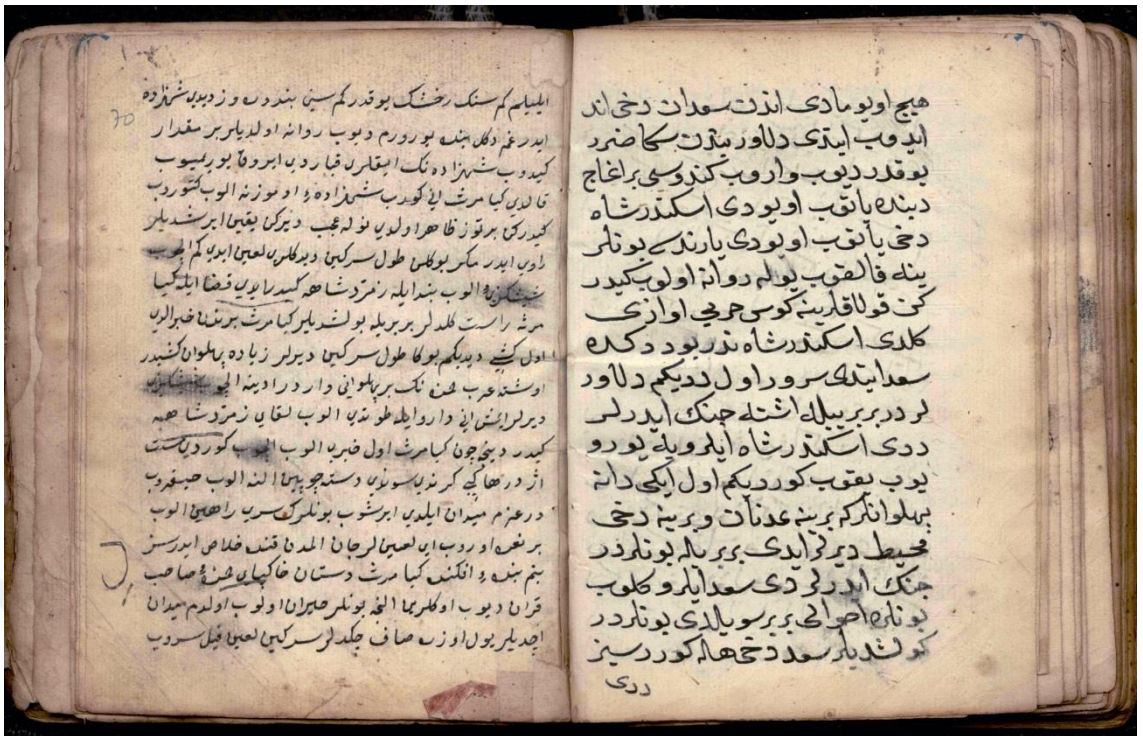 هیچ اویومادی اندن سعدان دخی اند
ایدوب ایتدی دلاور بندن سکا ضرر
یوقدر دیوب واروب کندوسی بر اغاج
دبنده یاتوب اویودی اسکندر شاه
دخی یاتوب اویودی یارندسی بونلر
ینه قالقوب یوله روانه اولوب کیدر
کن قولاقلرینه کوس حربی اوازی
کلدی اسکندر شاه ندر بو ددکده
سعد ایتدی سرور اول ددیکم دلاور
لر در بربریله اشته جنک ایدرلر
ددی اسکندر شاه ایلرویه یورو
یوب بقوب کوردیکم اول ایکی دانه
پهلوانلر که برینه عدنان و برینه دخی
محیط دیرلر ایدی بربریله بونلردر
جنک ایدرلر دی سعد ایلرو کلوب
بونلره احوالی بربر سویلدی بونلردر
کولشدیلر سعد دخی هله کوررسیز
ددی
ایلیلم کم سنک رخشک یوقدر کم سنی بندوره وز دیدی شهزاده
ایدر غم دکل بنده یورورم دیوب روانه اولدیلر بر مقدار
کیدوب شهزاده نک ایقلری قباردی ایروق یوریمیوب
قالدی کیامرث انی کوروب شهزاده یی اوموزنه الوب کتوروب
کیدرکن بر توز ظاهر اولدی نوله عجب دیرکن یقین ایرشدیلر
راوی ایدر مکر بوکلن طول سرکین دیدکلری لعین ایدی کم
الوب بند ایله زمرد شاهه کیدر ایدی قضا ایله کیا
مرثه راست کلدلر بربریله بولشدیلر کیامرث بربرندن خبر الدی
اول کشی دیدیکم بوکا طول سرکین دیرلر زیاده پهلوان کشیدر
اوشته عرب حمزه نک بر پهلوانی وار در ادینه
دیرلر ایمش انی وار وایله طوتدی الوب لقای زمرد شاهه
کیدر دینجه چون کیامرث اول خبری الوب کوردی مست
اژدرها کبی کرندی سوندی دسته چوبین النه الوب صیقروب
در عزم میدان ایلدی ایرشوب بونلرک سری راهین الوب
بر نعره اوروب ای لعینلر جان المدن قنده خلاص ایدرسز
بنم بنده یی افکنده کیامرث دستان خاکپای حمزه صاحب
قران دیوب اوکلرینی الجه بونلر حیران اولوب اولدم میدان
اچدیلر یول اوزره صاف چکدلر سرکین لعین فیل سوروب